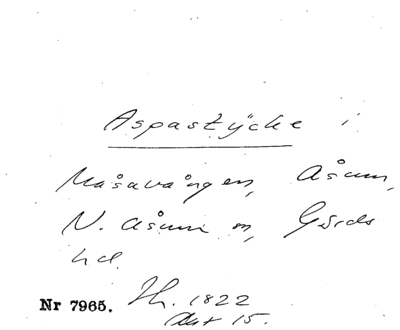 Aspastycke i
Måsavången, Åsum,
N. Åsum sn, Gärds
hd.
Nr 7965. Jh. 1822
Akt 15.